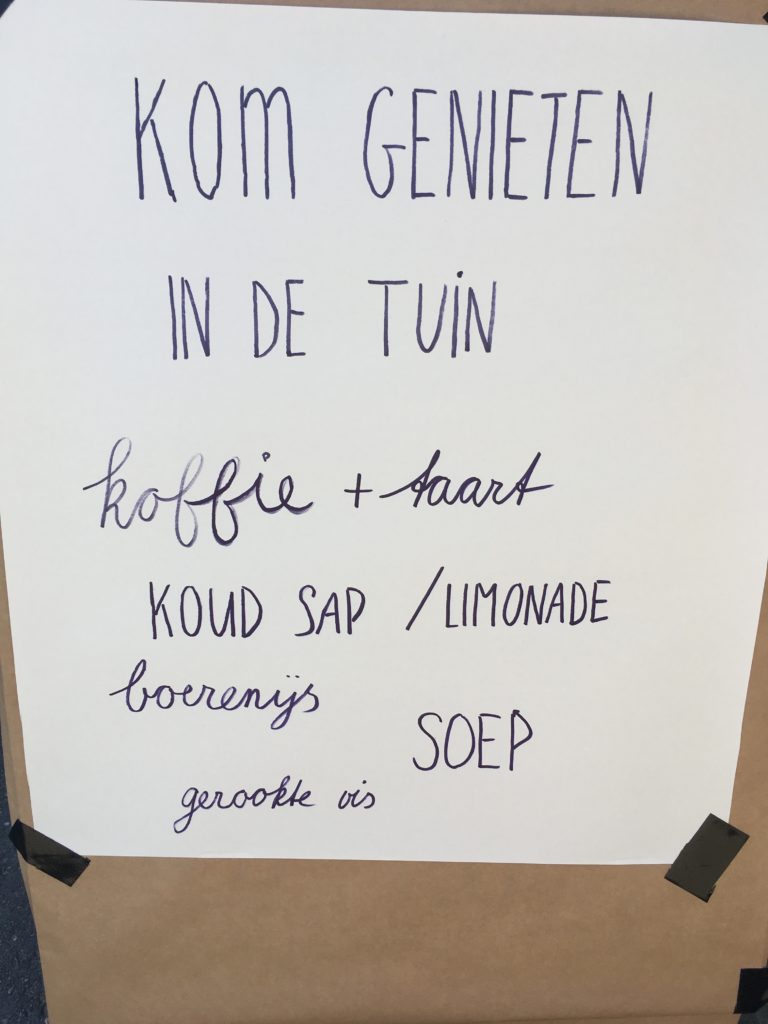 KOM GENIETEN
IN DE TUIN
koffie + taart
KOUD SAP / LIMONADE
boerenijs
SOEP
gerookte vis